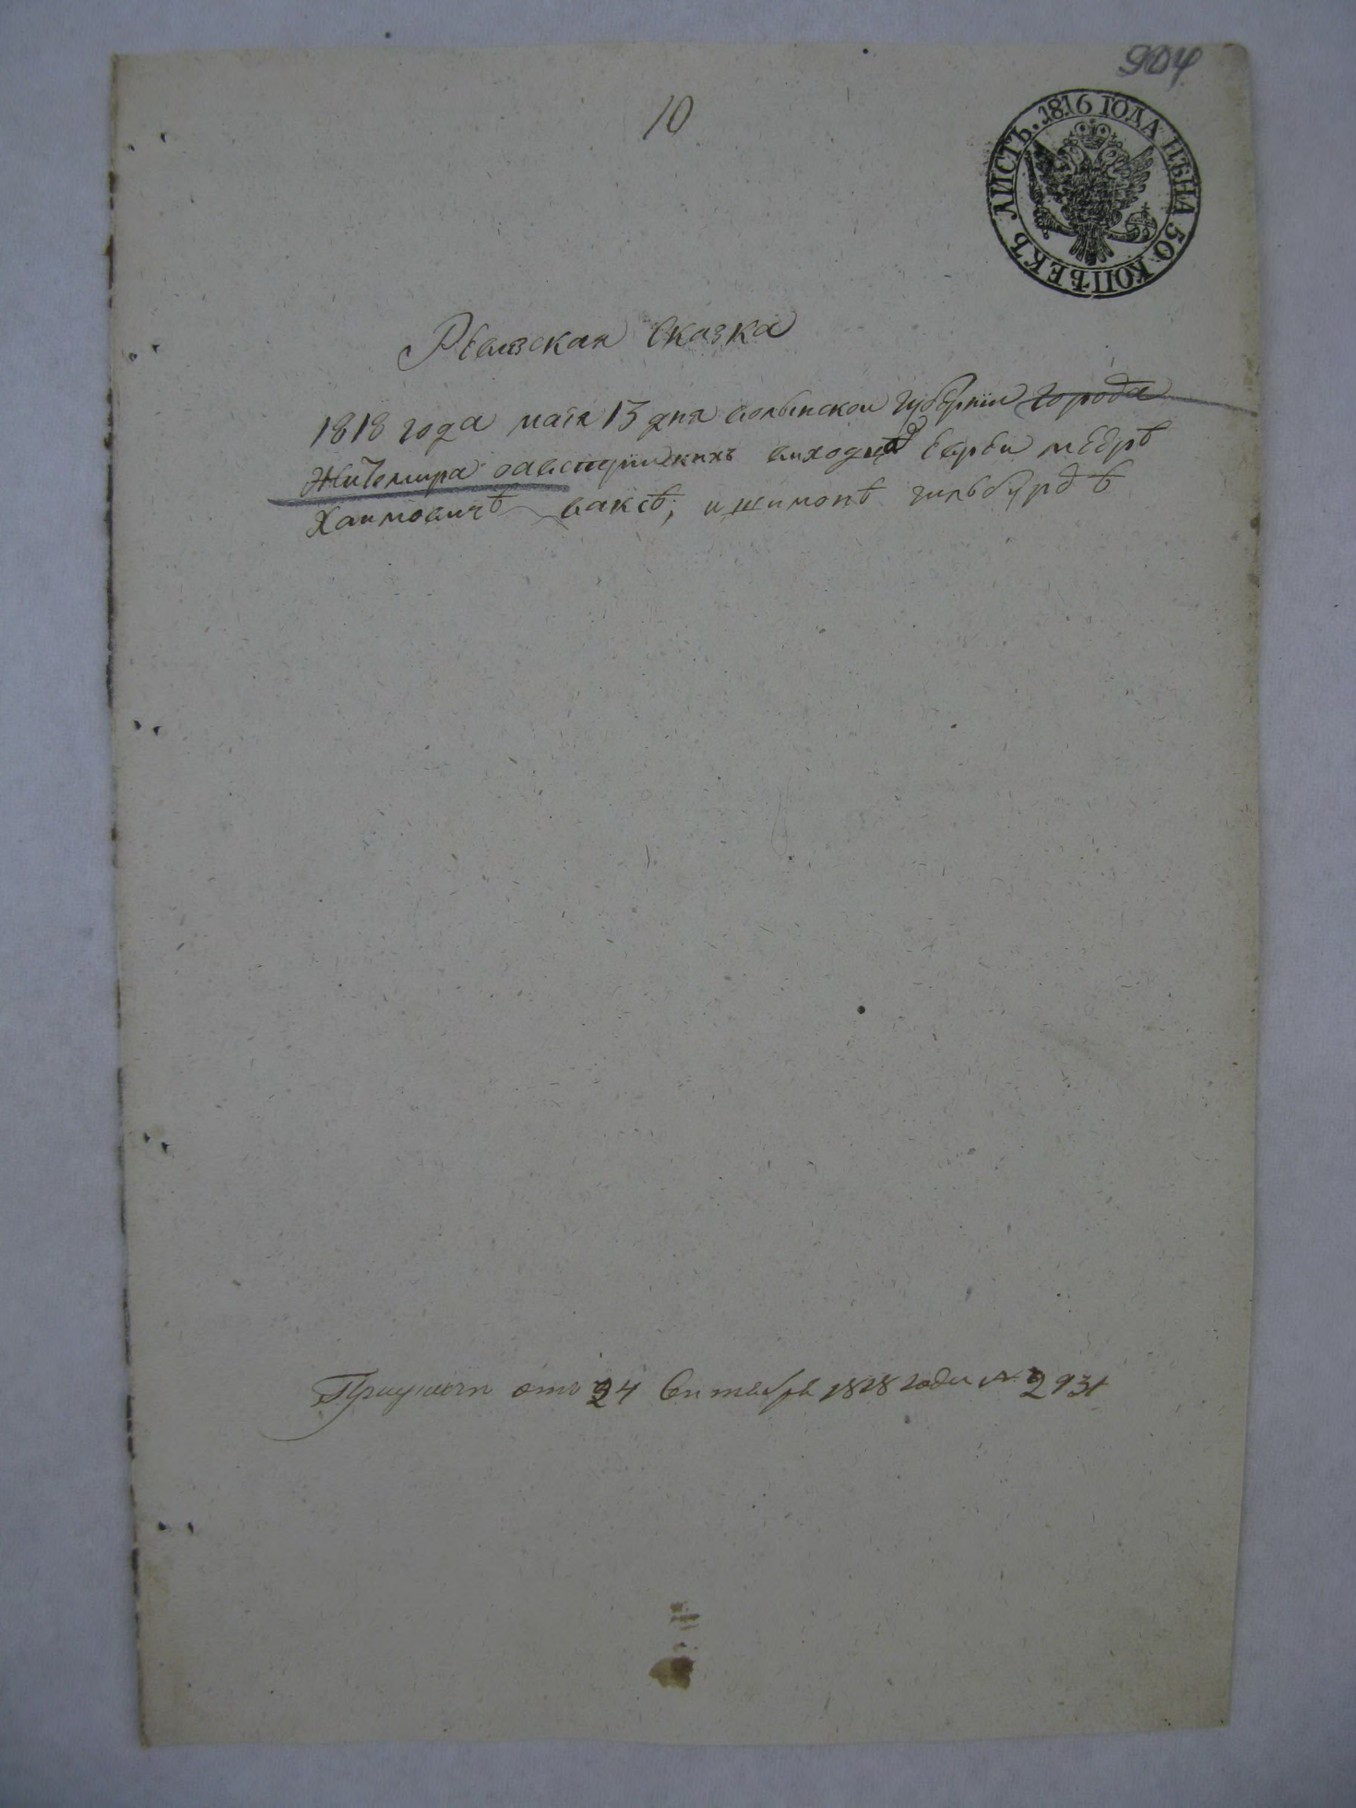 904
10
ЛИСТЪ. 1816 ГОДА ЦѢНА 50 КОПѢЕКЪ
Ревизская сказка
1818 года маія 13 дня волынской губернии города
Житомира оавстрийскихъ виходцахъ Евреи меерѣ
Хаимовичѣ ваксѣ, и шимонѣ гильбурдѣ
отъ 24 Сентября 1818 года № 2931